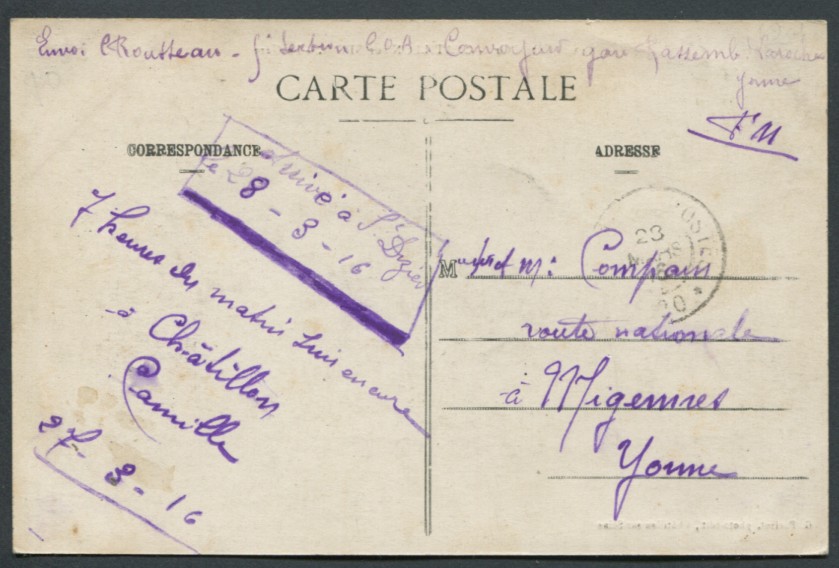 Envoi C Routteau - Section C.O.A Convoyeur gare
Yonne
F.M
CARTE POSTALE
CORRESPONDANCE
ADRESSE
Arrivé à St Dizier
le 28-3-16
7 heures du matin suis encore
à Châtillon
Camille
27-3-16
M et M: Compain
route nationale
à Migennes
Yonne
POSTES